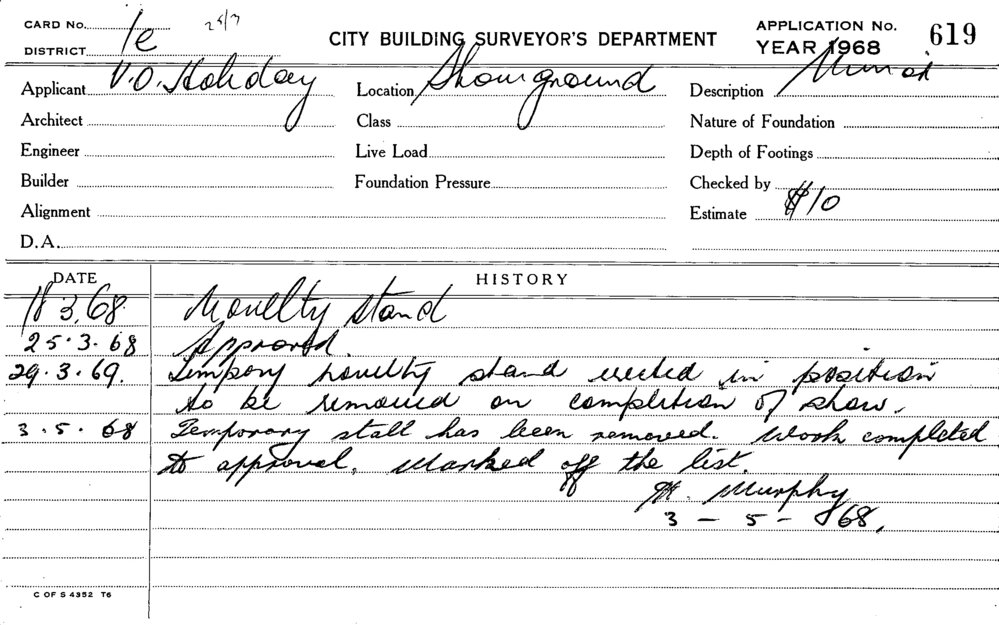 CARD No. 1c 25/3
CITY BUILDING SURVEYOR'S DEPARTMENT
APPLICATION No. 619
DISTRICT
YEAR 1968
Applicant V.O. Holiday
Location Showground
Description Minor
Architect
Class
Nature of Foundation
Engineer
Live Load
Depth of Footings
Builder
Foundation Pressure
Checked by
Alignment
Estimate $10
D.A.
DATE HISTORY
18 3.68. Novelty stand
25.3.68 Approved.
29.3.69. Tempory novelty stand erected in position
to be removed on completion of show.
3.5.68 Temporary stall has been removed. Work completed
to approval. Marked off the list.
Murphy
3-5-68.
C OF S 4352 T6